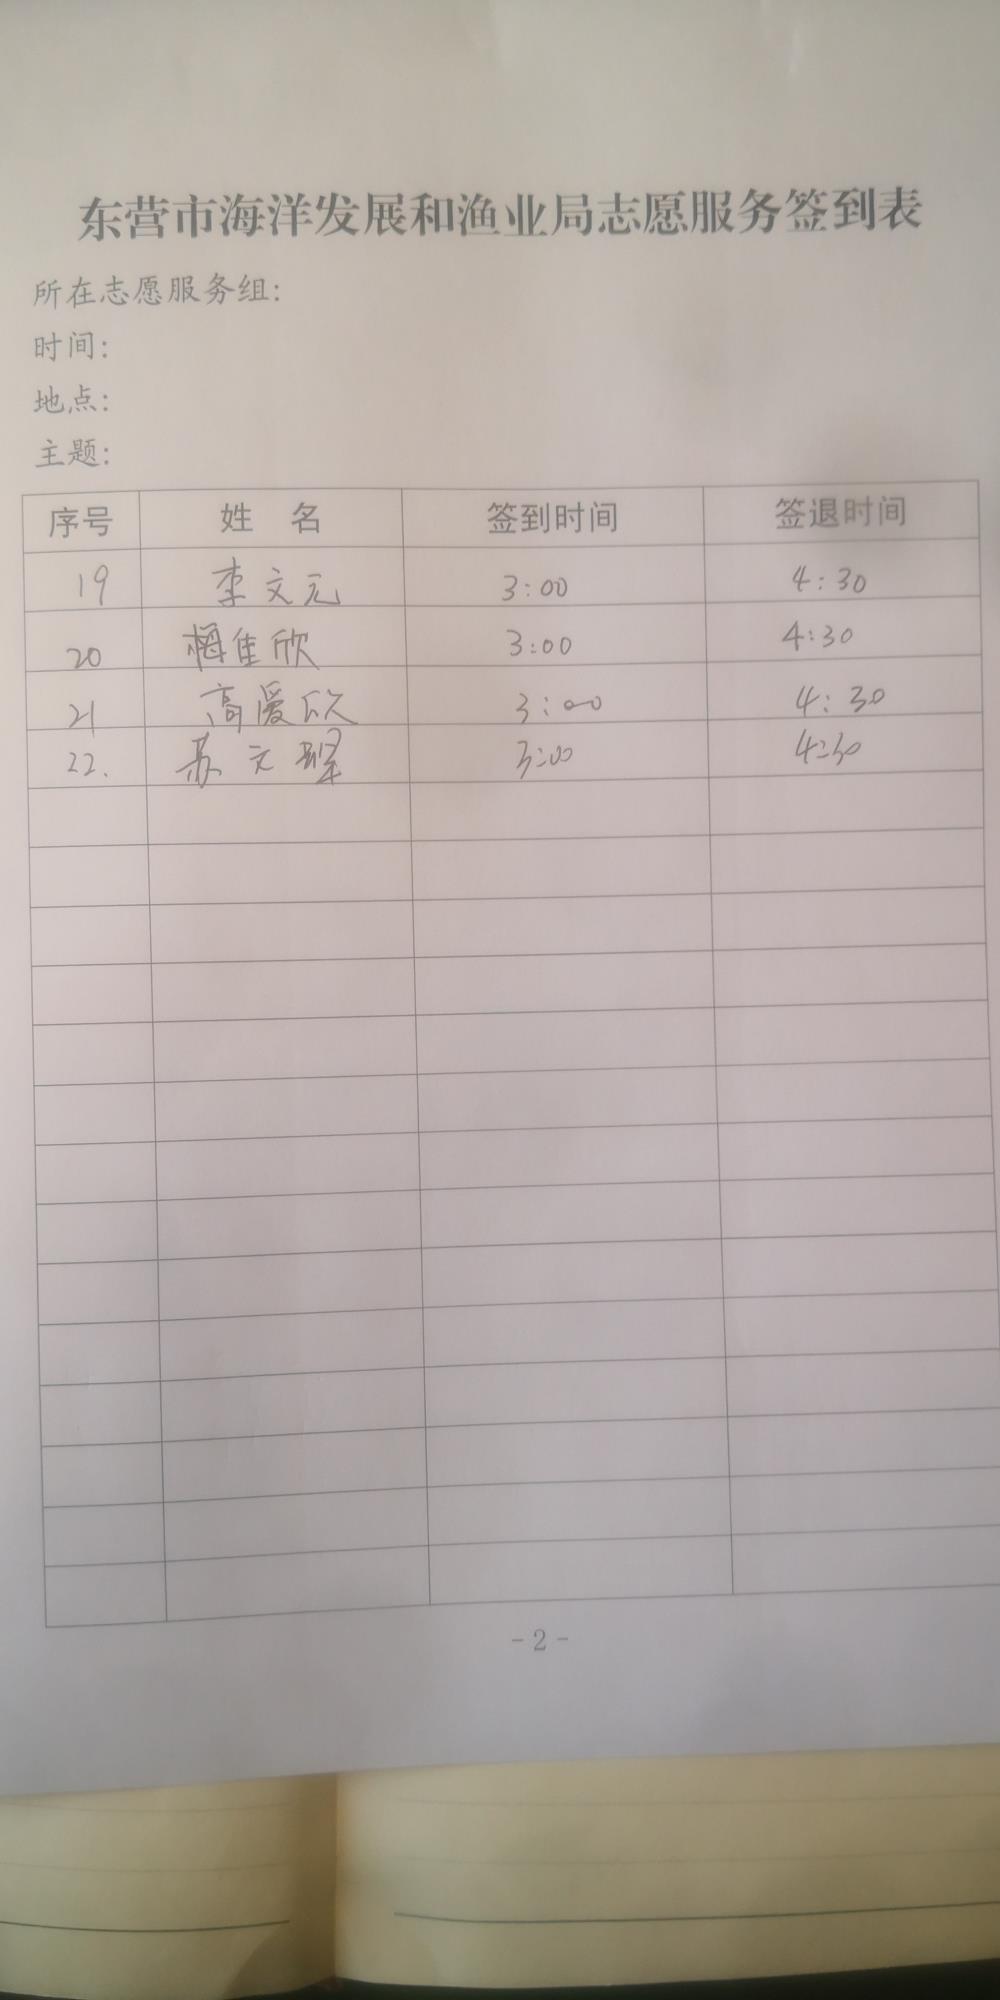 东营市海洋发展和渔业局志愿服务签到表
所在志愿服务组:
时间:
地点:
主题:
序号 姓 名 签到时间 签退时间
19 李文元 3:00 4:30
20 梅佳欣 3:00 4:30
21 高爱欣 3:00 4:30
22. 苏元 3:00 4:30
-2-